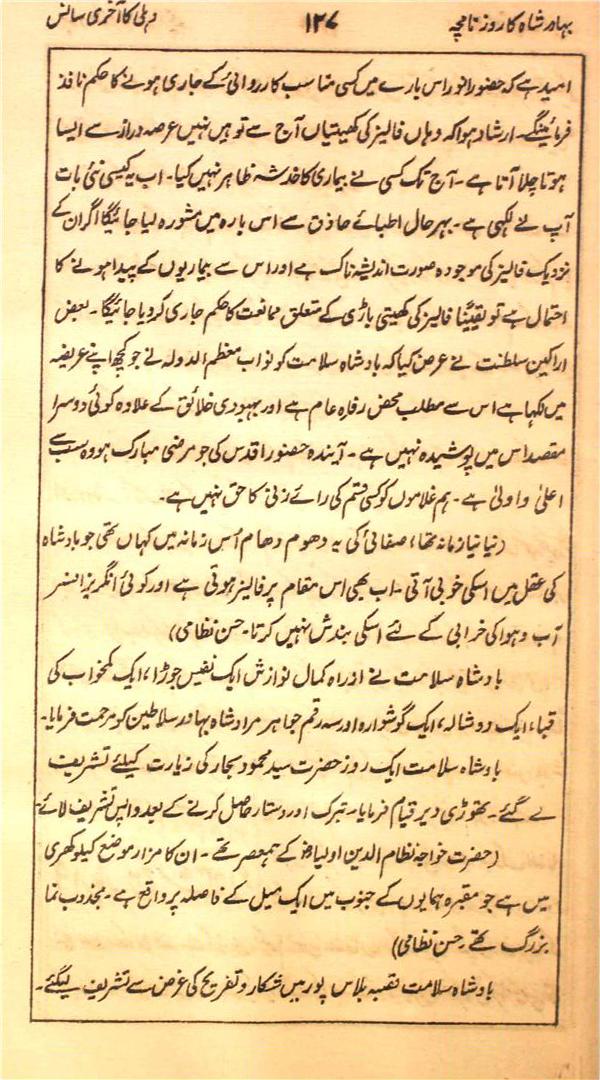 بہادر شاہ کا روزنامچہ ۱۲۷ دہلی کا آخری سانس
امید ہے کہ حضور انور اس بارے میں کسی مناسب کارروائی کے جاری ہونے کا حکم نافذ
فرمائینگے۔ ارشاد ہوا کہ وہاں فالیز کی کھیتیاں آج سے تو ہیں نہیں عرصہ دراز سے ایسا
ہوتا چلا آتا ہے۔ آج تک کسی نے بیماری کا خدشہ ظاہر نہیں کیا۔ اب یہ کیسی نئی بات
آپ نے لکھی ہے۔ بہر حال اطبائے حاذق سے اس بارہ میں مشورہ لیا جائیگا اگر ان کے
نزدیک فالیز کی موجودہ صورت اندیشہ ناک ہے اور اس سے بیماریوں کے پیدا ہونے کا
احتمال ہے تو یقیناً فالیز کی کھیتی باڑی کے متعلق ممانعت کا حکم جاری کر دیا جائیگا۔ بعض
اراکین سلطنت نے عرض کیا کہ بادشاہ سلامت کو نواب معظم الدولہ نے جو کچھ اپنے عریضہ
میں لکھا ہے اس سے مطلب محض رفاہ عام ہے اور بہبودی خلائق کے علاوہ کوئی دوسرا
مقصد اس میں پوشیدہ نہیں ہے۔ آیندہ حضور اقدس کی جو مرضی مبارک ہو وہ سب سے
اعلیٰ و اولیٰ ہے۔ ہم غلاموں کو کسی قسم کی رائے زنی کا حق نہیں ہے۔
(نیا نیا زمانہ تھا، صفائی کی یہ دھوم دھام اُس زمانہ میں کہاں تھی جو بادشاہ
کی عقل میں اسکی خوبی آتی۔ اب بھی اس مقام پر فالیز ہوتی ہے اور کوئی انگریز افسر
آب و ہوا کی خرابی کے لئے اسکی بندش نہیں کرتا۔ حسن نظامی)
بادشاہ سلامت نے ازراہ کمال نوازش ایک نفیس جوڑا، ایک کمخواب کی
قبا، ایک دوشالہ، ایک گوشوارہ اور سہ رقم جواہر مرزا شاہ بہادر سلاطین کو مرحمت فرمایا۔
بادشاہ سلامت ایک روز حضرت سید محمود بحار کی زیارت کیلئے تشریف
لے گئے۔ تھوڑی دیر قیام فرمایا۔ تبرک اور دستار حاصل کرنے کے بعد واپس تشریف لائے۔
(حضرت خواجہ نظام الدین اولیاؒ کے ہمعصر تھے۔ ان کا مزار موضع کیلوکھری
میں ہے جو مقبرہ ہمایوں کے جنوب میں ایک میل کے فاصلہ پر واقع ہے۔ مجذوب نما
بزرگ تھے۔ حسن نظامی)
بادشاہ سلامت قصبہ بلاس پور میں شکار و تفریح کی غرض سے تشریف لیگئے۔